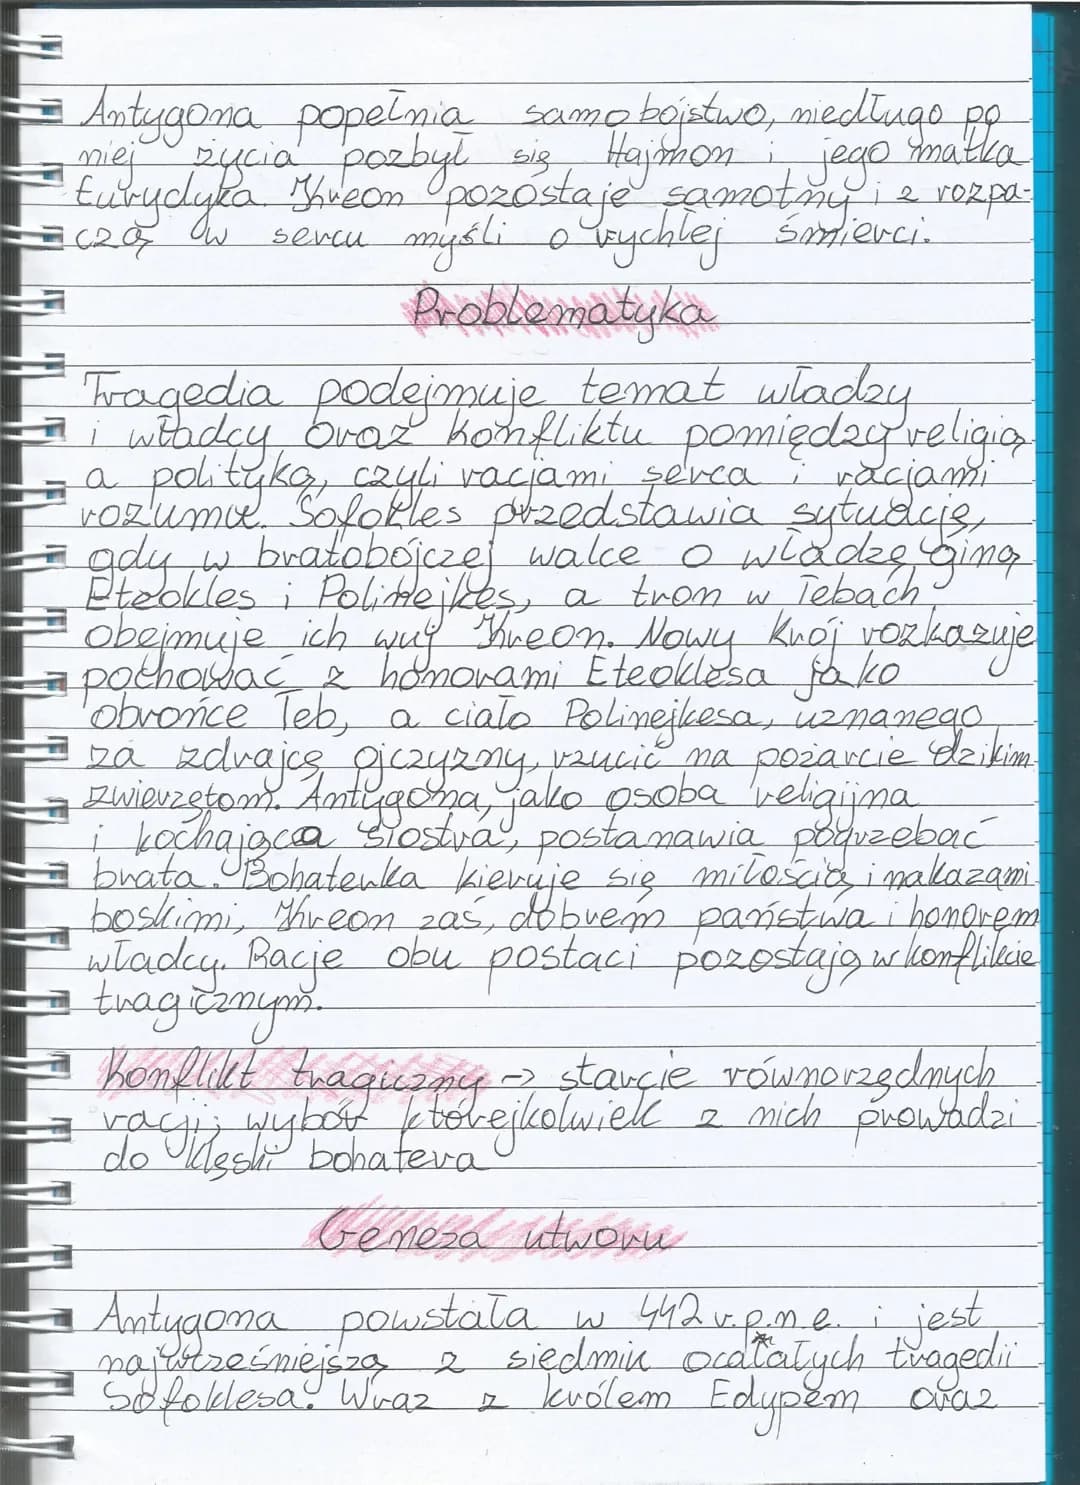 Antygona popełnia samobójstwo, niedługo po
niej życia pozbył się Hajmon i jego matka
Eurydyka. Khreon pozostaje samotny i z rozpa-
czą w sercu myśli o rychłej śmierci.
Problematyka
Tragedia podejmuje temat władzy
i władcy oraz konfliktu pomiędzy religią
a polityką, czyli racjami serca i racjami
rozumu. Sofokles przedstawia sytuację,
gdy w bratobójczej walce o władzę giną
Eteokles i Polinejkes, a tron w Tebach
obejmuje ich wuj Khreon. Nowy król rozkazuje
pochować z honorami Eteoklesa jako
obrońce Teb, a ciało Polinejkesa, uznanego
za zdrajcę ojczyzny, rzucić na pożarcie dzikim
zwierzętom. Antygona, jako osoba religijna
i kochająca siostra, postanawia pogrzebać
brata. Bohaterka kieruje się miłością i nakazami
boskimi, Khreon zaś, dobrem państwa i honorem
władcy. Racje obu postaci pozostają w konflikcie
tragicznym.
Konflikt tragiczny -> starcie równorzędnych
racji; wybór którejkolwiek z nich prowadzi
do klęski bohatera
Geneza utworu
Antygona powstała w 442 r. p.n.e. i jest
najwcześniejszą z siedmiu ocalałych tragedii
Sofoklesa. Wraz z królem Edypem oraz